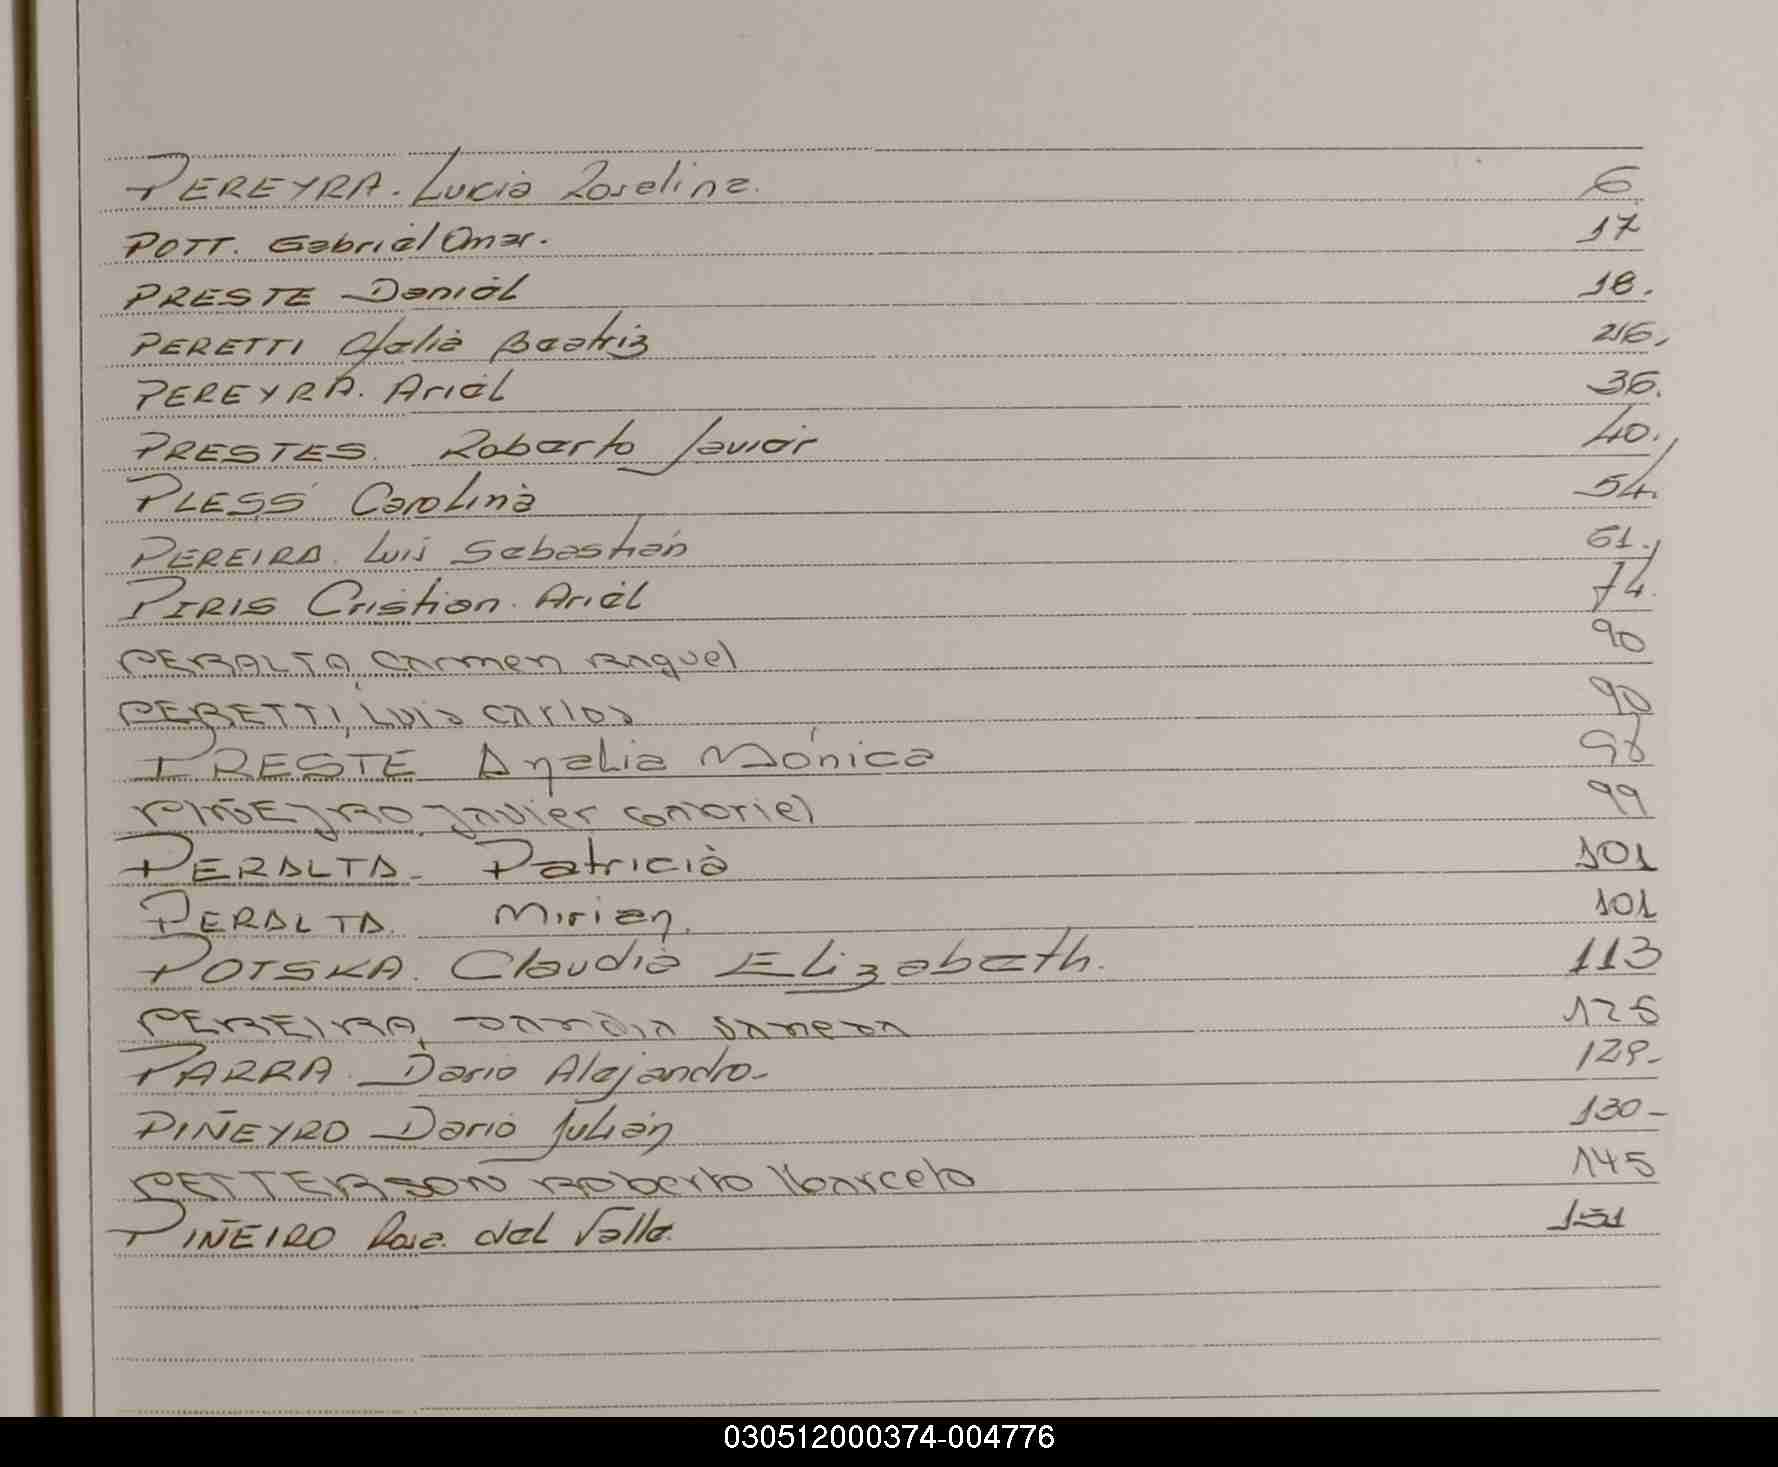 PEREYRA. Lucia Roselina. 6
POTT. Gabriel Omar. 17
PRESTE Daniel 18.
PERETTI Ofelia Beatriz 26.
PEREYRA. Ariel 36.
PRESTES. Roberto Javier 40.
PLESS Carolina 54.
PEREIRA. Luis Sebastián 61.
PIRIS Cristian. Ariel 74.
PERALTA, Carmen Raquel 90
PERETTI, Luis Carlos 90
PRESTE Analia Mónica 98
PIÑEYRO, Javier Gabriel 99
PERALTA. Patricia 101
PERALTA. Mirian. 101
POTSKA. Claudia Elizabeth. 113
PEREIRA, Vanesa 125
PARRA. Dario Alejandro- 129-
PIÑEYRO Dario Julián 130-
PETTERSON Roberto Marcelo 145
PIÑEIRO Rosa. del Valle. 151
030512000374-004776